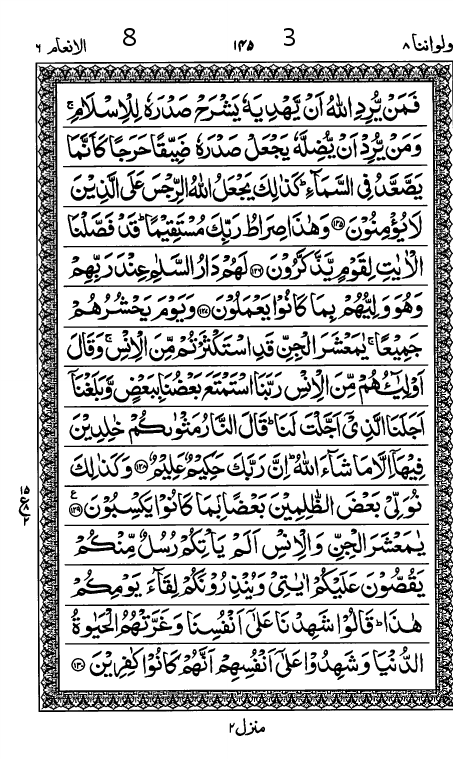 ولواننا ٨ 3 ١٤٥ 8 الانعام ٦
فَمَنْ يُّرِدِ اللّٰهُ اَنْ يَّهْدِيَهٗ يَشْرَحْ صَدْرَهٗ لِلْاِسْلَامِ ۚ
وَمَنْ يُّرِدْ اَنْ يُّضِلَّهٗ يَجْعَلْ صَدْرَهٗ ضَيِّقًا حَرَجًا كَاَنَّمَا
يَصَّعَّدُ فِى السَّمَآءِ ؕ كَذٰلِكَ يَجْعَلُ اللّٰهُ الرِّجْسَ عَلَى الَّذِيْنَ
لَا يُؤْمِنُوْنَ ﴿١٢٥﴾ وَهٰذَا صِرَاطُ رَبِّكَ مُسْتَقِيْمًا ؕ قَدْ فَصَّلْنَا
الْاٰيٰتِ لِقَوْمٍ يَّذَّكَّرُوْنَ ﴿١٢٦﴾ لَهُمْ دَارُ السَّلٰمِ عِنْدَ رَبِّهِمْ
وَهُوَ وَلِيُّهُمْ بِمَا كَانُوْا يَعْمَلُوْنَ ﴿١٢٧﴾ وَيَوْمَ يَحْشُرُهُمْ
جَمِيْعًا ۚ يٰمَعْشَرَ الْجِنِّ قَدِ اسْتَكْثَرْتُمْ مِّنَ الْاِنْسِ ۚ وَقَالَ
اَوْلِيٰٓـُٔهُمْ مِّنَ الْاِنْسِ رَبَّنَا اسْتَمْتَعَ بَعْضُنَا بِبَعْضٍ وَّبَلَغْنَاۤ
اَجَلَنَا الَّذِىْۤ اَجَّلْتَ لَنَا ؕ قَالَ النَّارُ مَثْوٰىكُمْ خٰلِدِيْنَ
فِيْهَاۤ اِلَّا مَا شَآءَ اللّٰهُ ؕ اِنَّ رَبَّكَ حَكِيْمٌ عَلِيْمٌ ﴿١٢٨﴾ وَكَذٰلِكَ
نُوَلِّىْ بَعْضَ الظّٰلِمِيْنَ بَعْضًۢا بِمَا كَانُوْا يَكْسِبُوْنَ ﴿١٢٩﴾ ع
١٥
ع ٨
٢
يٰمَعْشَرَ الْجِنِّ وَالْاِنْسِ اَلَمْ يَاْتِكُمْ رُسُلٌ مِّنْكُمْ
يَقُصُّوْنَ عَلَيْكُمْ اٰيٰتِىْ وَيُنْذِرُوْنَكُمْ لِقَآءَ يَوْمِكُمْ
هٰذَا ؕ قَالُوْا شَهِدْنَا عَلٰٓى اَنْفُسِنَا وَغَرَّتْهُمُ الْحَيٰوةُ
الدُّنْيَا وَشَهِدُوْا عَلٰٓى اَنْفُسِهِمْ اَنَّهُمْ كَانُوْا كٰفِرِيْنَ ﴿١٣٠﴾
منزل ٢